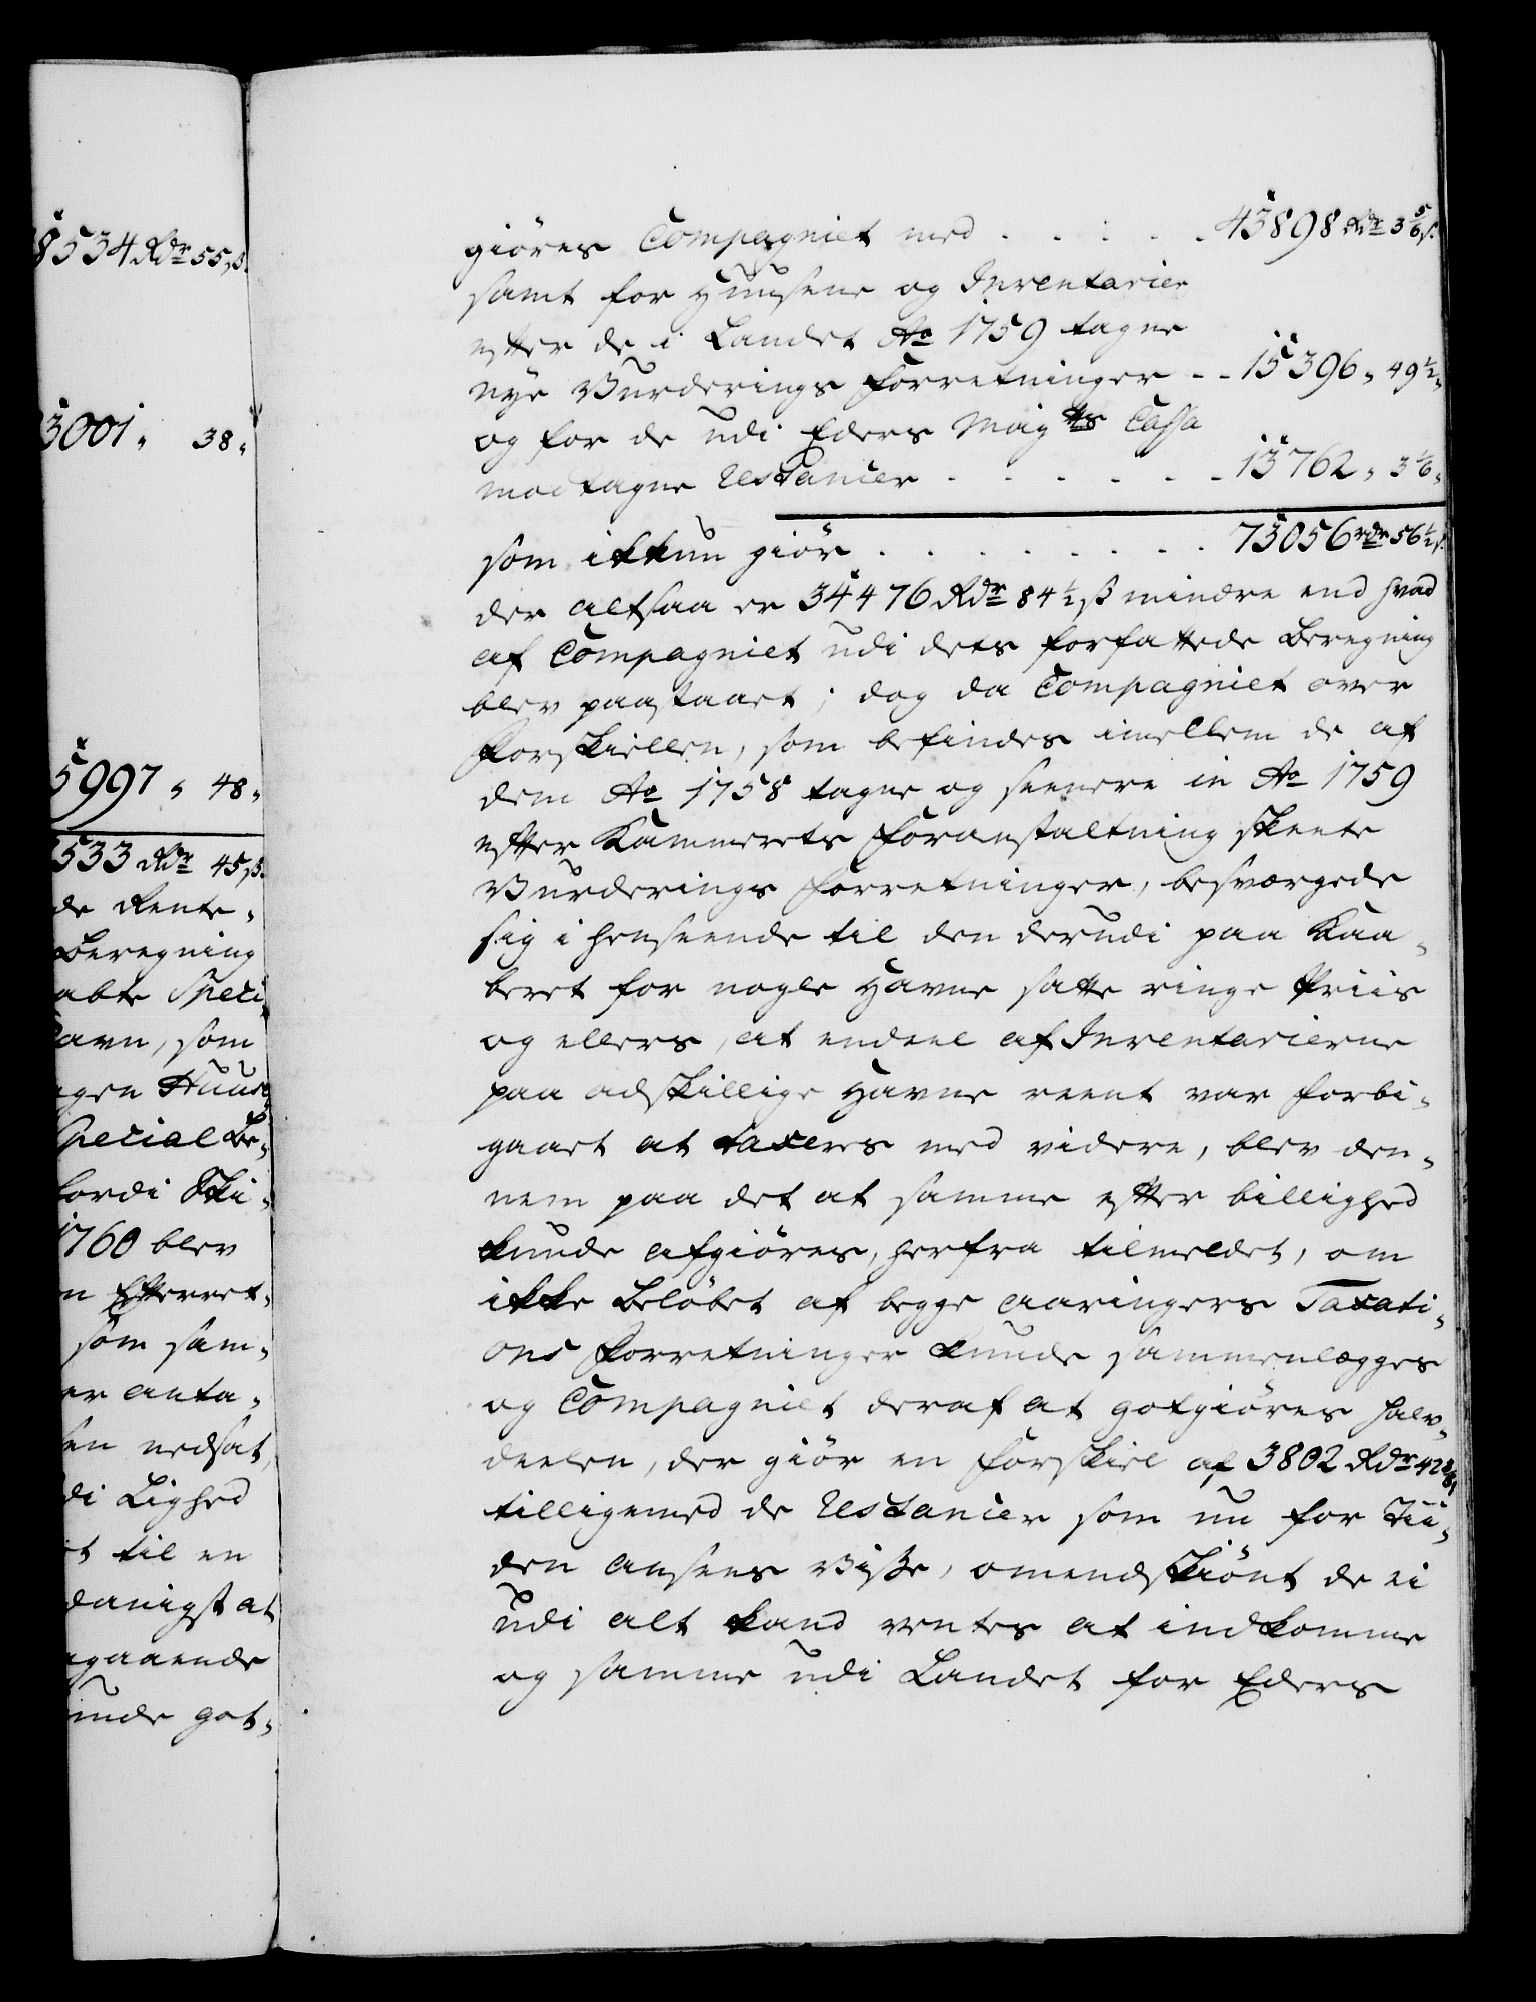 8534 Rdr 55 ß.
3001 " 38 "
5997 " 48 "
533 Rdr 45 ß.
de Rente-
Beregning
abte Speci-
avn, som
gen Huuse
Special Be-
fordi Ski-
1760 blev
n Efterret-
som sam-
er anta-
sen nedsat,
di Lighed
t til en
danigst at
gaaende
unde got-
giöres Compagniet med . . . . . 43898 Rdr 3 5/6 ß.
samt for Huusene og Inventarier
efter de i Landet Ao 1759 tagne
nye Vurderings Forretninger - - 15396 " 49 1/2 "
og for de udi Eders Maytts Cassa
modtagne Restancier . . . . . . 13762 " 3 1/6 "
som ikkun giör . . . . . . . . 73056 rdr 56 1/2 ß.
der altsaa er 34476 Rdr 84 1/2 ß mindre end hvad
af Compagniet udi dets forfattede Beregning
blev paastaaet; dog da Compagniet over
Forskiellen, som befindes imellem de af
dem Ao 1758 tagne og seenere in Ao 1759
efter Kammerets Foranstaltning skeete
Vurderings Forretninger, besværgede
sig i henseende til den derudi paa Kaa-
beret for nogle Havne satte ringe Priis
og ellers, at endeel af Inventarierne
paa adskillige Havne reent var forbi-
gaaet at taxeres med videre, blev den-
nem paa det at samme efter billighed
kunde afgiöres, herfra tilmeldet, om
ikke Belöbet af begge aaringers Taxati-
ons Forretninger kunde sammenlægges
og Compagniet deraf at gotgiöres halv-
deelen, der giör en Forskiel af 3802 Rdr 42 ß,
tilligemed de Restancier som nu for Tii-
den ansees Visse, omendskiönt de ei
udi alt kand ventes at indkomme
og samme udi Landet for Eders